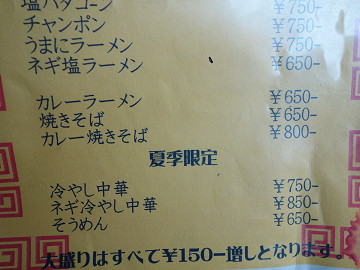 塩バタコーン ¥750-
チャンポン ¥750-
うまにラーメン ¥750-
ネギ塩ラーメン ¥650-
カレーラーメン ¥650-
焼きそば ¥650-
カレー焼きそば ¥800-
夏季限定
冷やし中華 ¥750-
ネギ冷やし中華 ¥850-
そうめん ¥650-
大盛りはすべて¥150-増しとなります。